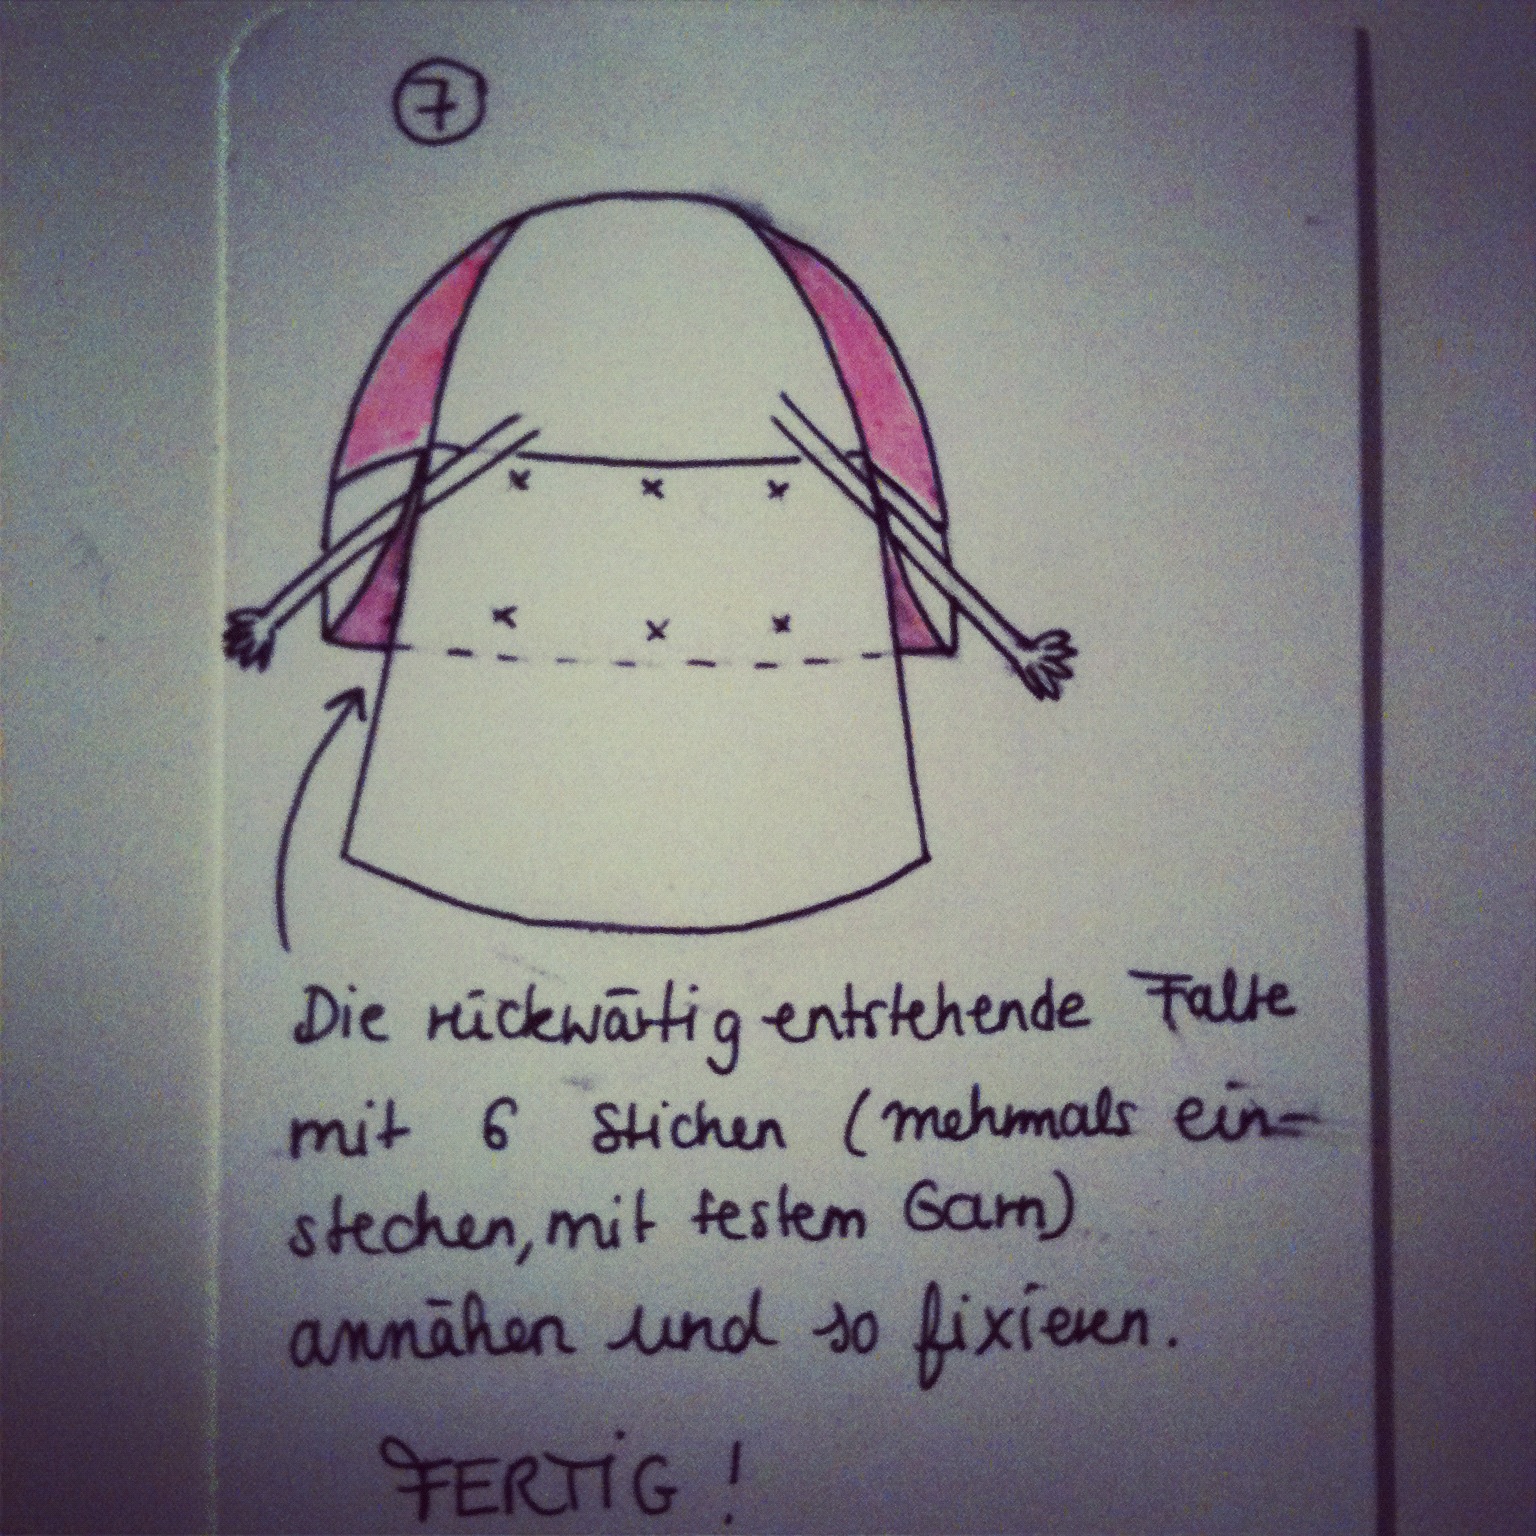 7
Die rückwärtig entstehende Falte
mit 6 Stichen (mehrmals ein=
stechen, mit festem Garn)
annähen und so fixieren.
FERTIG!